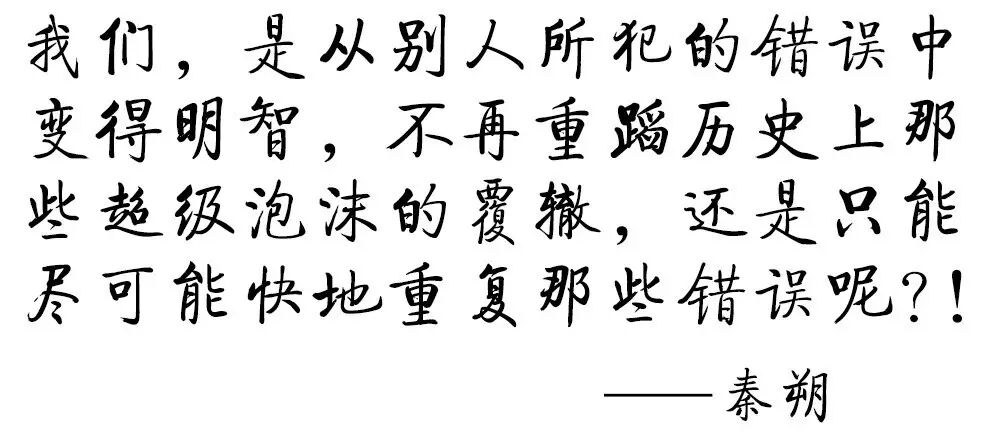 我们，是从别人所犯的错误中
变得明智，不再重蹈历史上那
些超级泡沫的覆辙，还是只能
尽可能快地重复那些错误呢?!
——秦朔